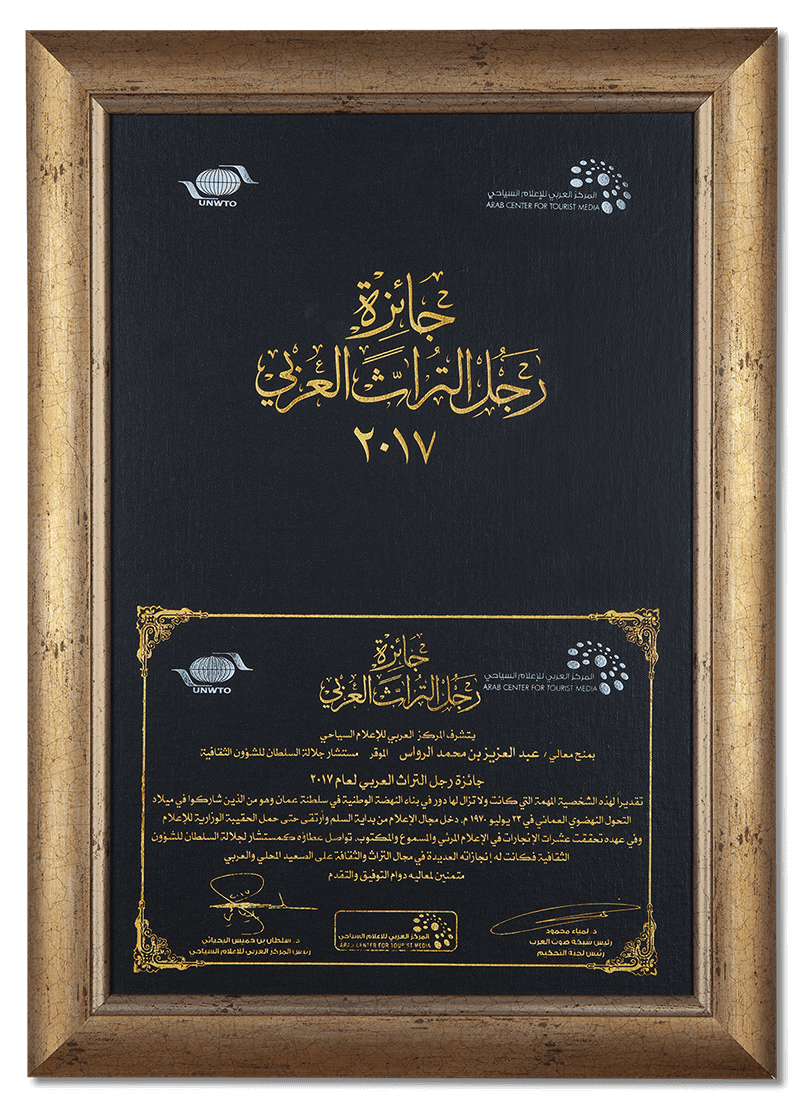 UNWTO
المركز العربي للإعلام السياحي
ARAB CENTER FOR TOURIST MEDIA
جائزة
رجل التراث العربي
٢٠١٧
UNWTO
جائزة
رجل التراث العربي
المركز العربي للإعلام السياحي
ARAB CENTER FOR TOURIST MEDIA
يتشرف المركز العربي للإعلام السياحي
بمنح معالي / عبد العزيز بن محمد الرواس الموقر مستشار جلالة السلطان للشؤون الثقافية
جائزة رجل التراث العربي لعام ٢٠١٧
تقديرا لهذه الشخصية المهمة التي كانت ولا تزال لها دور في بناء النهضة الوطنية في سلطنة عمان وهو من الذين شاركوا في ميلاد
التحول النهضوي العماني في ٢٣ يوليو ١٩٧٠ م. دخل مجال الإعلام من بداية السلم وأرتقى حتى حمل الحقيبة الوزارية للإعلام
وفي عهده تحققت عشرات الإنجازات في الإعلام المرئي والمسموع والمكتوب. تواصل عطاؤه كمستشار لجلالة السلطان للشؤون
الثقافية فكانت له إنجازاته العديدة في مجال التراث والثقافة على الصعيد المحلي والعربي
متمنين لمعاليه دوام التوفيق والتقدم
د. لمياء محمود
رئيس شبكة صوت العرب
رئيس لجنة التحكيم
المركز العربي للإعلام السياحي
ARAB CENTER FOR TOURIST MEDIA
د. سلطان بن خميس اليحيائي
رئيس المركز العربي للإعلام السياحي